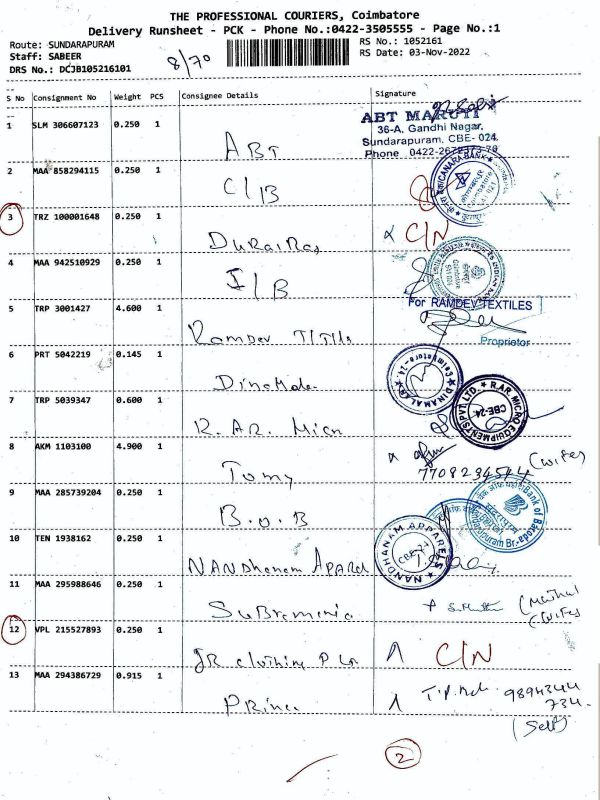 THE PROFESSIONAL COURIERS, Coimbatore
Delivery Runsheet - PCK - Phone No.:0422-3505555 - Page No.:1
Route: SUNDARAPURAM
RS No.: 1052161
Staff: SABEER
RS Date: 03-Nov-2022
DRS No.: DCJB105216101
8/70
S No Consignment No Weight PCS Consignee Details Signature
1 SLM 306607123 0.250 1 ABT
ABT MARUTI
36-A, Gandhi Nagar,
Sundarapuram, CBE- 024.
2 MAA 858294115 0.250 1 C/B
CANARA BANK
3 TRZ 100001648 0.250 1 DuraiRaj C/N
4 MAA 942510929 0.250 1 I/B
5 TRP 3001427 4.600 1 Ramdev
For RAMDEV TEXTILES
Proprietor
6 PRT 5042219 0.145 1
DINAMALAR
Coimbatore-24
7 TRP 5039347 0.600 1 R. AR. Micr
R.AR. MICRO EQUIPMENTS (P) LTD.
CBE-24.
8 AKM 1103100 4.900 1 Tomy
7708234514 (wife)
9 MAA 285739204 0.250 1 B.O.B
Bank of Baroda
10 TEN 1938162 0.250 1 NANDhanam
NANDHANAM APPARELS
11 MAA 295988646 0.250 1
(wife)
12 VPL 215527893 0.250 1 JR clothing C/N
13 MAA 294386729 0.915 1
9894344
734.
(Self)
2